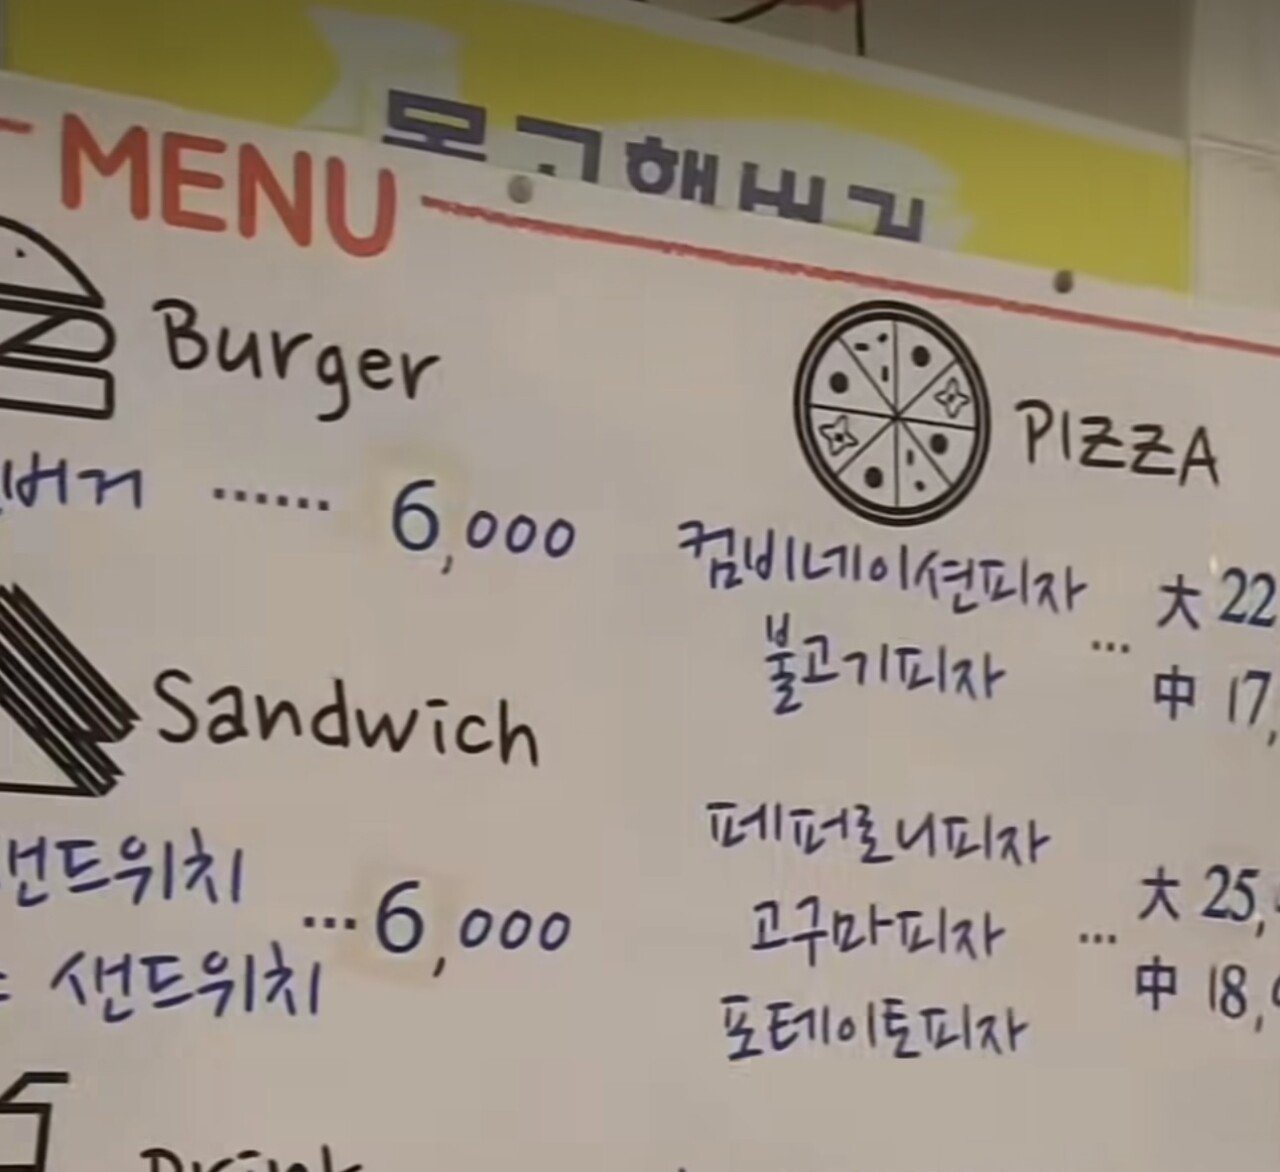 MENU
Burger
버거 ...... 6,000
Sandwich
샌드위치
... 6,000
샌드위치
PIZZA
컴비네이션피자
불고기피자
... 大 22
中 17,
페퍼로니피자
고구마피자
포테이토피자
... 大 25,
中 18,
Drink